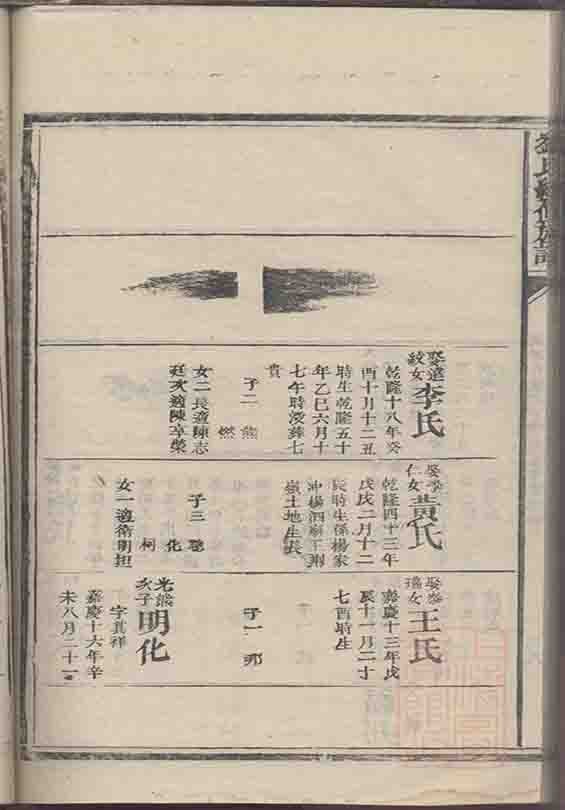 氏續修族譜
娶遠
紋女
李氏
乾隆十八年癸
酉十月十二丑
時生乾隆五十
年乙巳六月十
七午時歿葬七
貴
子二 熊
燃
女二長適陳志
廷次適陳享榮
仁女
黃氏
乾隆四十三年
戊戌二月十二
辰時生係楊家
沖楊泗廟王荊
嶺土地生長
子三 聰
化
柯
女一適衛明担
娶泰
瑞女
王氏
嘉慶十三年戊
辰十一月二十
七酉時生
子一 邦
光熊
次子
明化
字其祥
嘉慶十六年辛
未八月二十一